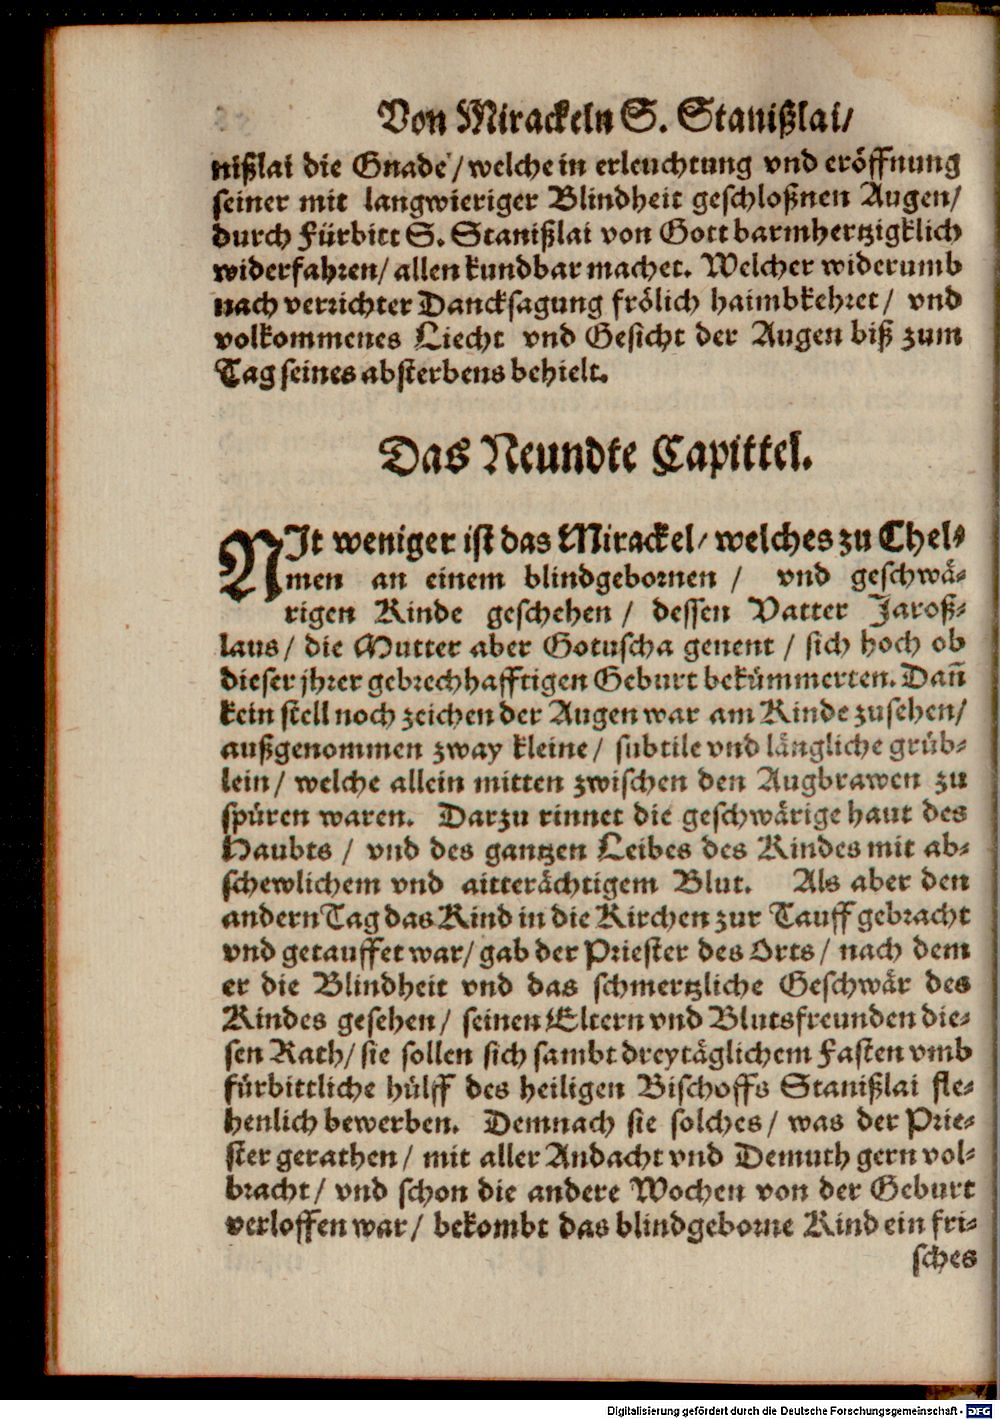 Von Mirackeln S. Stanißlai/
nißlai die Gnade/ welche in erleuchtung vnd eröffnung
seiner mit langwieriger Blindheit geschloßnen Augen/
durch Fürbitt S. Stanißlai von Gott barmhertzigklich
widerfahren/ allen kundbar machet. Welcher widerumb
nach verrichter Dancksagung frölich haimbkehret/ vnd
volkommenes Liecht vnd Gesicht der Augen biß zum
Tag seines absterbens behielt.
Das Neundte Capittel.
NIt weniger ist das Mirackel/ welches zu Chel-
men an einem blindgebornen / vnd geschwä-
rigen Kinde geschehen / dessen Vatter Jaroß-
laus/ die Mutter aber Gotuscha genent / sich hoch ob
dieser jhrer gebrechhafftigen Geburt bekümmerten. Dañ
kein stell noch zeichen der Augen war am Kinde zusehen/
außgenommen zway kleine/ subtile vnd längliche grüb-
lein/ welche allein mitten zwischen den Augbrawen zu
spüren waren. Darzu rinnet die geschwärige haut des
Haubts / vnd des gantzen Leibes des Kindes mit ab-
schewlichem vnd aitterächtigem Blut. Als aber den
andern Tag das Kind in die Kirchen zur Tauff gebracht
vnd getauffet war/ gab der Priester des Orts/ nach dem
er die Blindheit vnd das schmertzliche Geschwär des
Kindes gesehen/ seinen Eltern vnd Blutsfreunden die-
sen Rath/ sie sollen sich sambt dreytäglichem Fasten vmb
fürbittliche hülff des heiligen Bischoffs Stanißlai fle-
henlich bewerben. Demnach sie solches/ was der Prie-
ster gerathen/ mit aller Andacht vnd Demuth gern vol-
bracht/ vnd schon die andere Wochen von der Geburt
verloffen war/ bekombt das blindgeborne Kind ein fri-
sches
Digitalisierung gefördert durch die Deutsche Forschungsgemeinschaft - DFG